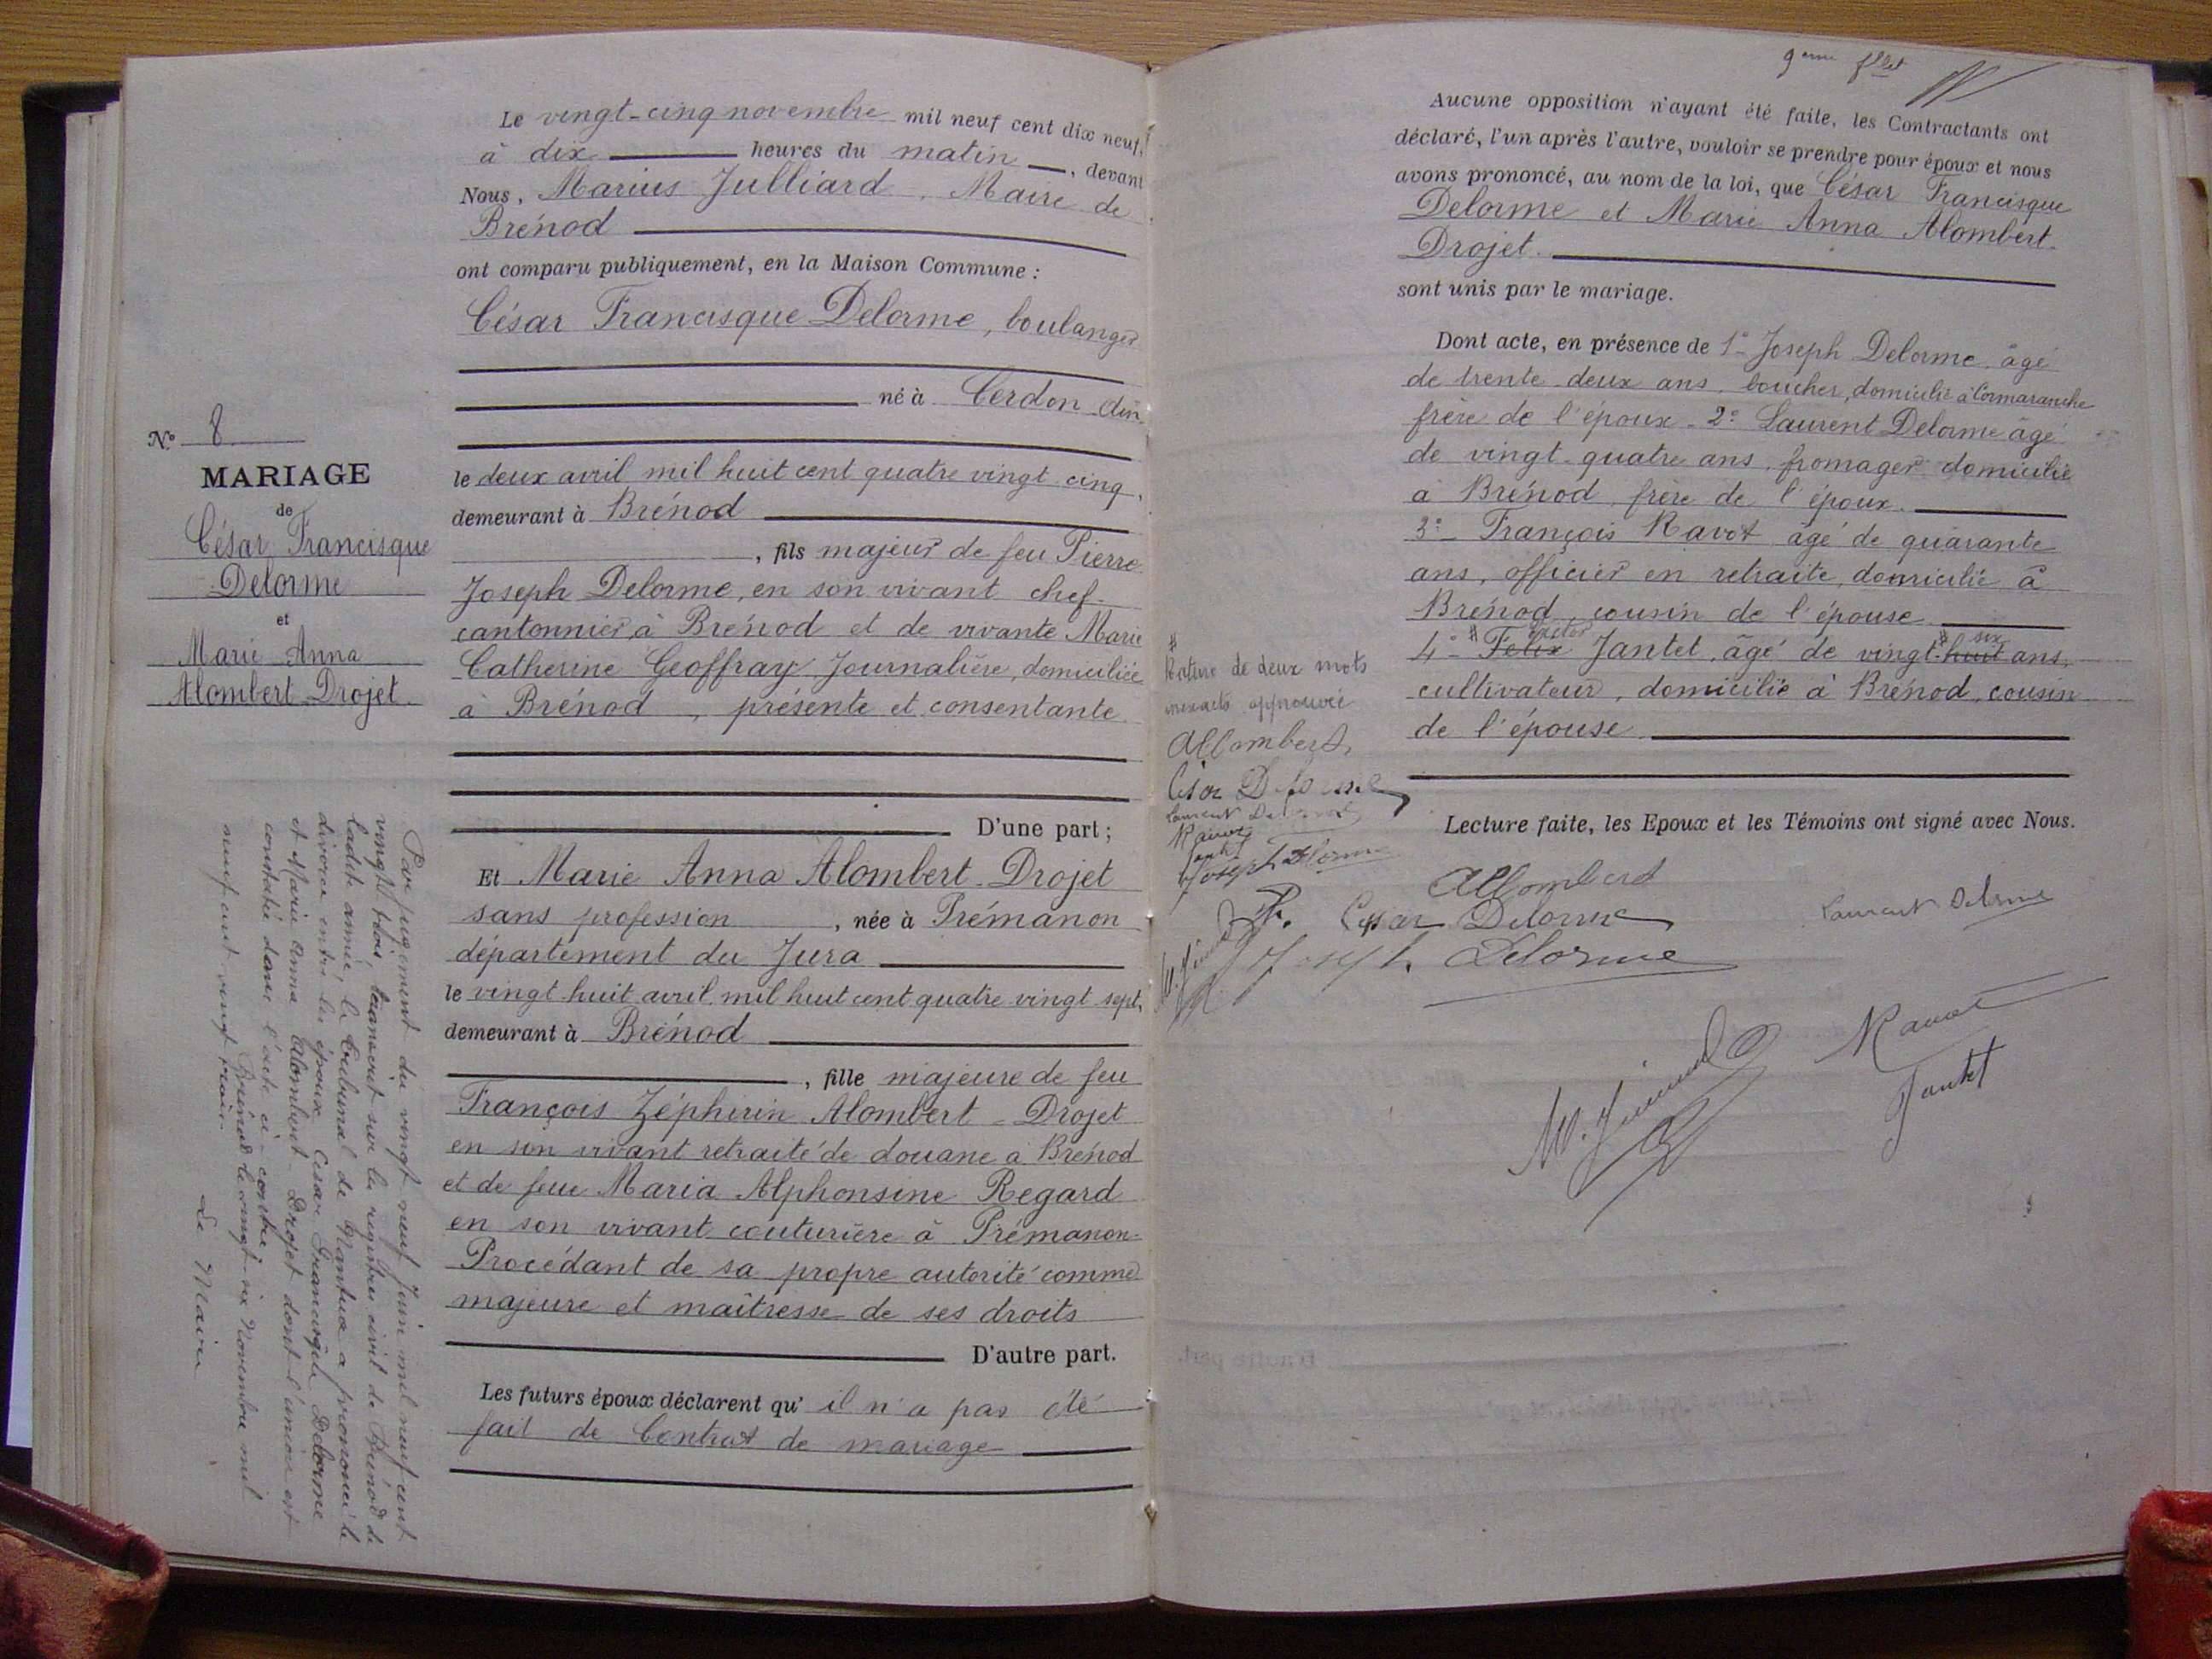 Le vingt-cinq novembre mil neuf cent dix neuf,
à dix heures du matin, devant
Nous, Marius Julliard, Maire de
Brénod
ont comparu publiquement, en la Maison Commune :
César Francisque Delorme, boulanger
né à Cerdon Ain
le deux avril mil huit cent quatre vingt cinq,
demeurant à Brénod
, fils majeur de feu Pierre
Joseph Delorme, en son vivant chef-
cantonnier, à Brénod et de vivante Marie
Catherine Geoffray Journalière, domiciliée
à Brénod, présente et consentante
D'une part ;
Et Marie Anna Alombert-Drojet
sans profession, née à Prémanon
département du Jura
le vingt huit avril mil huit cent quatre vingt sept,
demeurant à Brénod
, fille majeure de feu
François Zéphirin Alombert-Drojet
en son vivant retraité de douane à Brénod
et de feue Maria Alphonsine Regard
en son vivant couturière à Prémanon-
Procédant de sa propre autorité comme
majeure et maîtresse de ses droits
D'autre part.
Les futurs époux déclarent qu' il n'a pas été
fait de Contrat de mariage
N° 8
MARIAGE
de
César Francisque
Delorme
et
Marie Anna
Alombert-Drojet
Par jugement du vingt neuf Juin mil neuf cent
vingt trois, transcrit sur les registres civil de Brénod de
ladite année, le tribunal de Nantua a prononcé le
divorce entre les époux César Francisque Delorme
et Marie Anna Alombert-Drojet dont l'union est
constatée dans l'acte ci-contre.
Brénod le vingt six Novembre mil
neuf cent vingt trois.
Le Maire
9eme fllet
Aucune opposition n'ayant été faite, les Contractants ont
déclaré, l'un après l'autre, vouloir se prendre pour époux et nous
avons prononcé, au nom de la loi, que César Francisque
Delorme et Marie Anna Alombert-
Drojet
sont unis par le mariage.
Dont acte, en présence de 1° Joseph Delorme, âgé
de trente deux ans, boucher, domicilié à Cormaranche
frère de l'époux - 2° Laurent Delorme âgé
de vingt-quatre ans, fromager domicilié
à Brénod, frère de l'époux.
3° - François Ravot âgé de quarante
ans, officier en retraite, domicilié à
Brénod, cousin de l'épouse
4° - # Felix Victor Jantet, âgé de vingt-# huit six ans,
cultivateur, domicilié à Brénod, cousin
de l'épouse
Lecture faite, les Epoux et les Témoins ont signé avec Nous.
#
Rature de deux mots
inexacts approuvée
Allombert
César Delorme
Laurent Delorme
Ravot
Jantet
Joseph Delorme
Allomberd
César Delorme
Laurent Delorme
Joseph Delorme
Ravot
Jantet